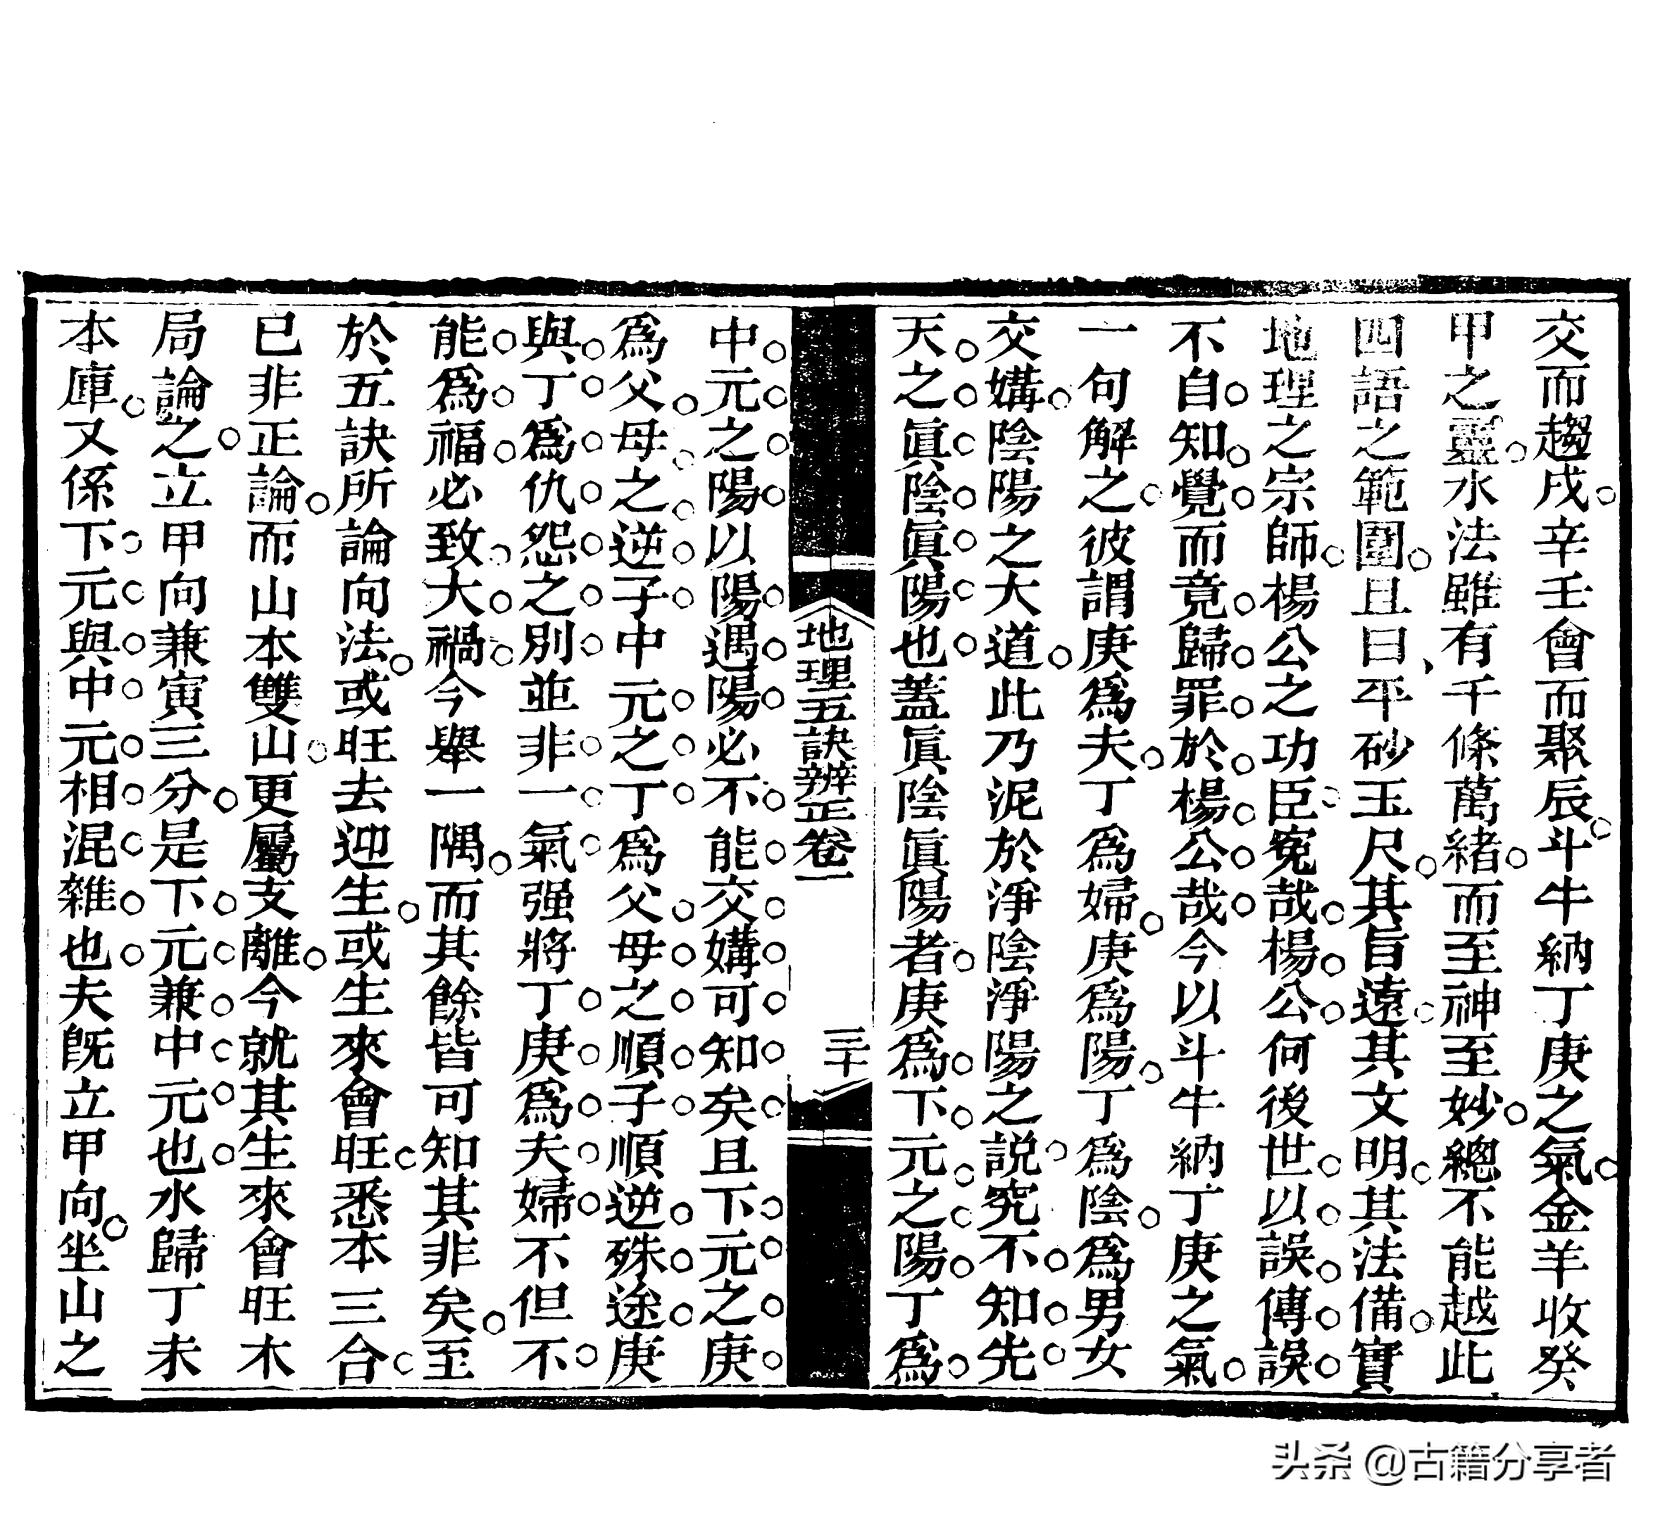 交而趨戌辛壬會而聚辰斗牛納丁庚之氣金羊收癸
甲之靈水法雖有千條萬緒而至神至妙總不能越此
四語之範圍且曰平砂玉尺其旨遠其文明其法備實
地理之宗師楊公之功臣寃哉楊公何後世以誤傳誤
不自知覺而竟歸罪於楊公哉今以斗牛納丁庚之氣
一句解之彼謂庚為夫丁為婦庚為陽丁為陰為男女
交媾陰陽之大道此乃泥於淨陰淨陽之説究不知先
天之眞陰眞陽也蓋眞陰眞陽者庚為下元之陽丁為
地理五訣辨正卷一
三十
中元之陽以陽遇陽必不能交媾可知矣且下元之庚
為父母之逆子中元之丁為父母之順子順逆殊途庚
與丁為仇怨之別並非一氣强將丁庚為夫婦不但不
能為福必致大禍今舉一隅而其餘皆可知其非矣至
於五訣所論向法或旺去迎生或生來會旺悉本三合
已非正論而山本雙山更屬支離今就其生來會旺木
局論之立甲向兼寅三分是下元兼中元也水歸丁未
本庫又係下元與中元相混雜也夫旣立甲向坐山之
头条 @古籍分享者